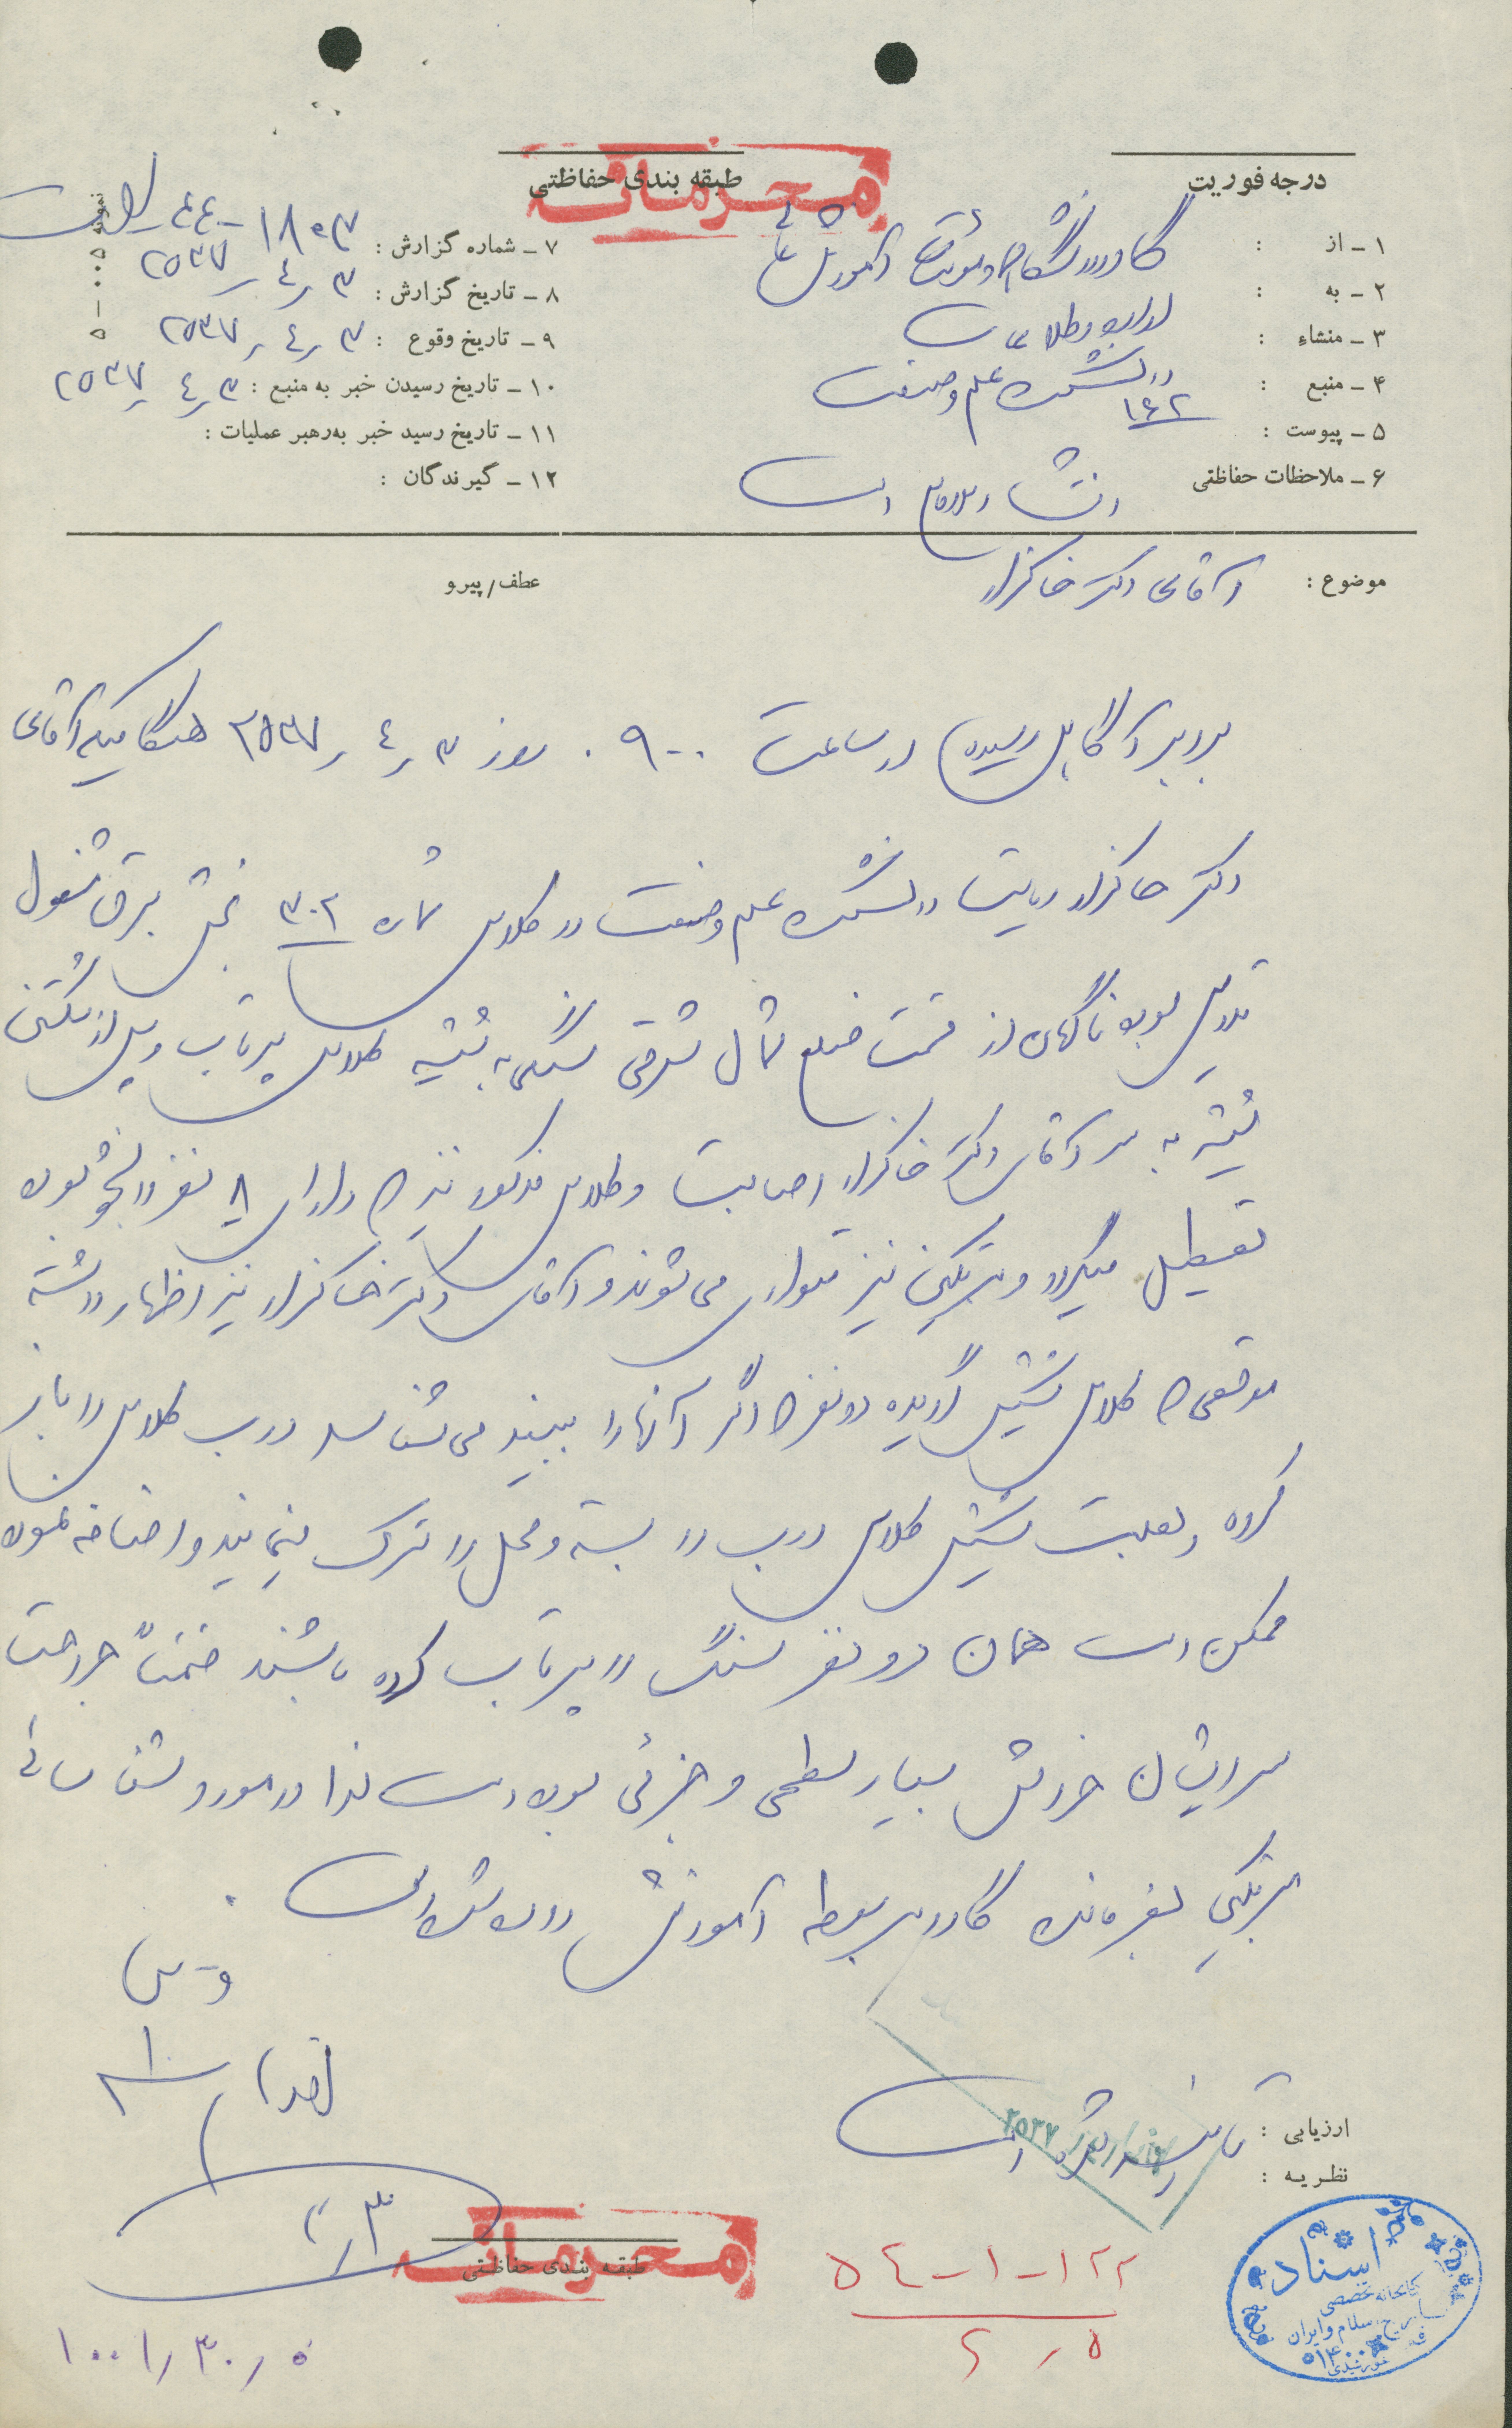 درجه فوریت
طبقه بندی حفاظتی
محرمانه
۱ - از : گارد دانشگاه
۲ - به : اداره اطلاعات
۳ - منشاء : دانشکده علم و صنعت
۴ - منبع : ۱۶۲
۵ - پیوست :
۶ - ملاحظات حفاظتی
۷ - شماره گزارش : ۱۸۰۳-۴۴
۸ - تاریخ گزارش : ۲۵۳۷٫۴٫۳
۹ - تاریخ وقوع : ۲۵۳۷٫۴٫۳
۱۰ - تاریخ رسیدن خبر به منبع : ۲۵۳۷٫۴٫۳
۱۱ - تاریخ رسید خبر به‌رهبر عملیات :
۱۲ - گیرندگان :
موضوع : آقای دکتر خاکزاد
عطف/پیرو
برابر آگاهی رسیده در ساعت ۰۹۰۰ روز ۲۵۳۷٫۴٫۳ هنگامیکه آقای
دکتر خاکزاد ریاست دانشکده علم و صنعت در کلاس شماره ۳۰۲ بخش برق مشغول
تدریس بوده ناگهان از قسمت ضلع شمال شرقی سنگی به شیشه کلاس پرتاب و پس از شکستن
شیشه به سر آقای دکتر خاکزاد اصابت و کلاس مذکور نیز که دارای ۸ نفر دانشجو بوده
تعطیل میگردد و مرتکبین نیز متواری می‌شوند و آقای دکتر خاکزاد نیز اظهار داشته
موقعی که کلاس تشکیل گردیده دو نفر که اگر آنها را ببیند می‌شناسد درب کلاس را باز
کرده و بعلت تشکیل کلاس درب را بسته و محل را ترک مینمایند و اضافه نموده
ممکن است همان دو نفر سنگ را پرتاب کرده باشند ضمناً جراحت
سر ایشان خراش بسیار سطحی و جزئی بوده است لذا در مورد شناسائی
مرتکبین بفرمانده گارد مربوطه آموزش داده شده است .
ارزیابی :
نظریه :
۲۵۳۷
طبقه بندی حفاظتی
محرمانه
۵۴-۱-۱۲۲
۲٫۵
۱۰۰۱٫۳۰٫۵
اسناد
کتابخانه تخصصی
تاریخ اسلام و ایران